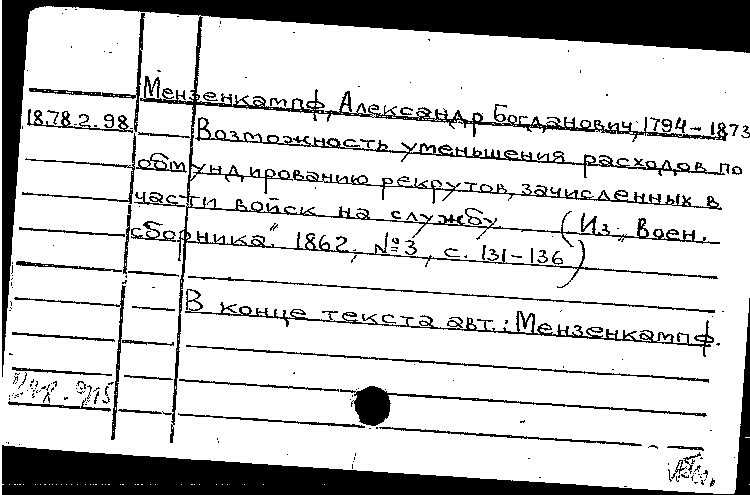 Мензенкампф, Александр Богданович, 1794-1873
18.78.2.98
Возможность уменьшения расходов по
обмундированию рекрутов, зачисленных в
части войск на службу (Из „Воен.
сборника." 1862, №3, с. 131-136)
В конце текста авт.: Мензенкампф.